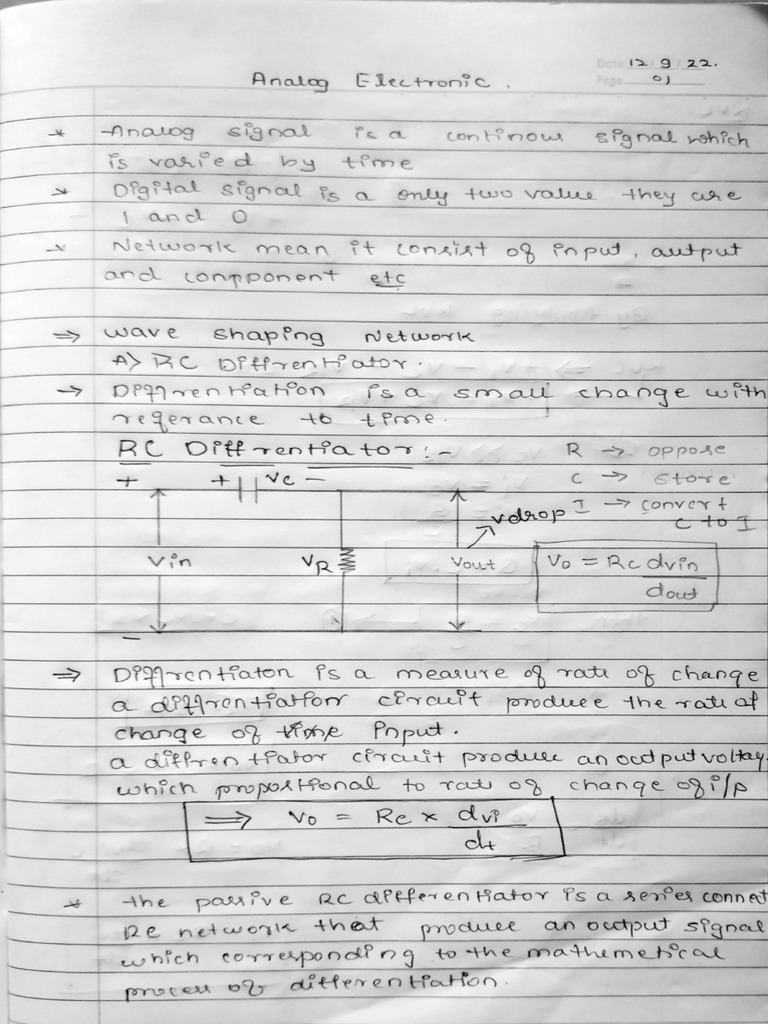 Date 12 / 9 / 22.
Page 01
Analog Electronic.
* Analog signal is a continous signal which
is varied by time
* Digital signal is a only two value they are
1 and 0
* Network mean it consist of input, output
and component etc
⇒ wave shaping Network
A> RC Diffrentiator.
→ Diffrentiation is a small change with
referance to time.
RC Diffrentiator:-
R → oppose
C → store
I → convert
C to I
+ + Vc -
Vdrop
Vin VR Vout
Vo = Rc dvin
dout
-
⇒ Diffrentiaton is a measure of rate of change
a diffrentiation circuit produce the rate of
change of time input.
a diffrentiator circuit produce an output voltay
which propostional to rate of change of i/p
⇒ Vo = Rc × dvi
dt
* the passive RC differentiator is a series connect
RC network that produce an output signal
which corresponding to the mathemetical
process of differentiation.